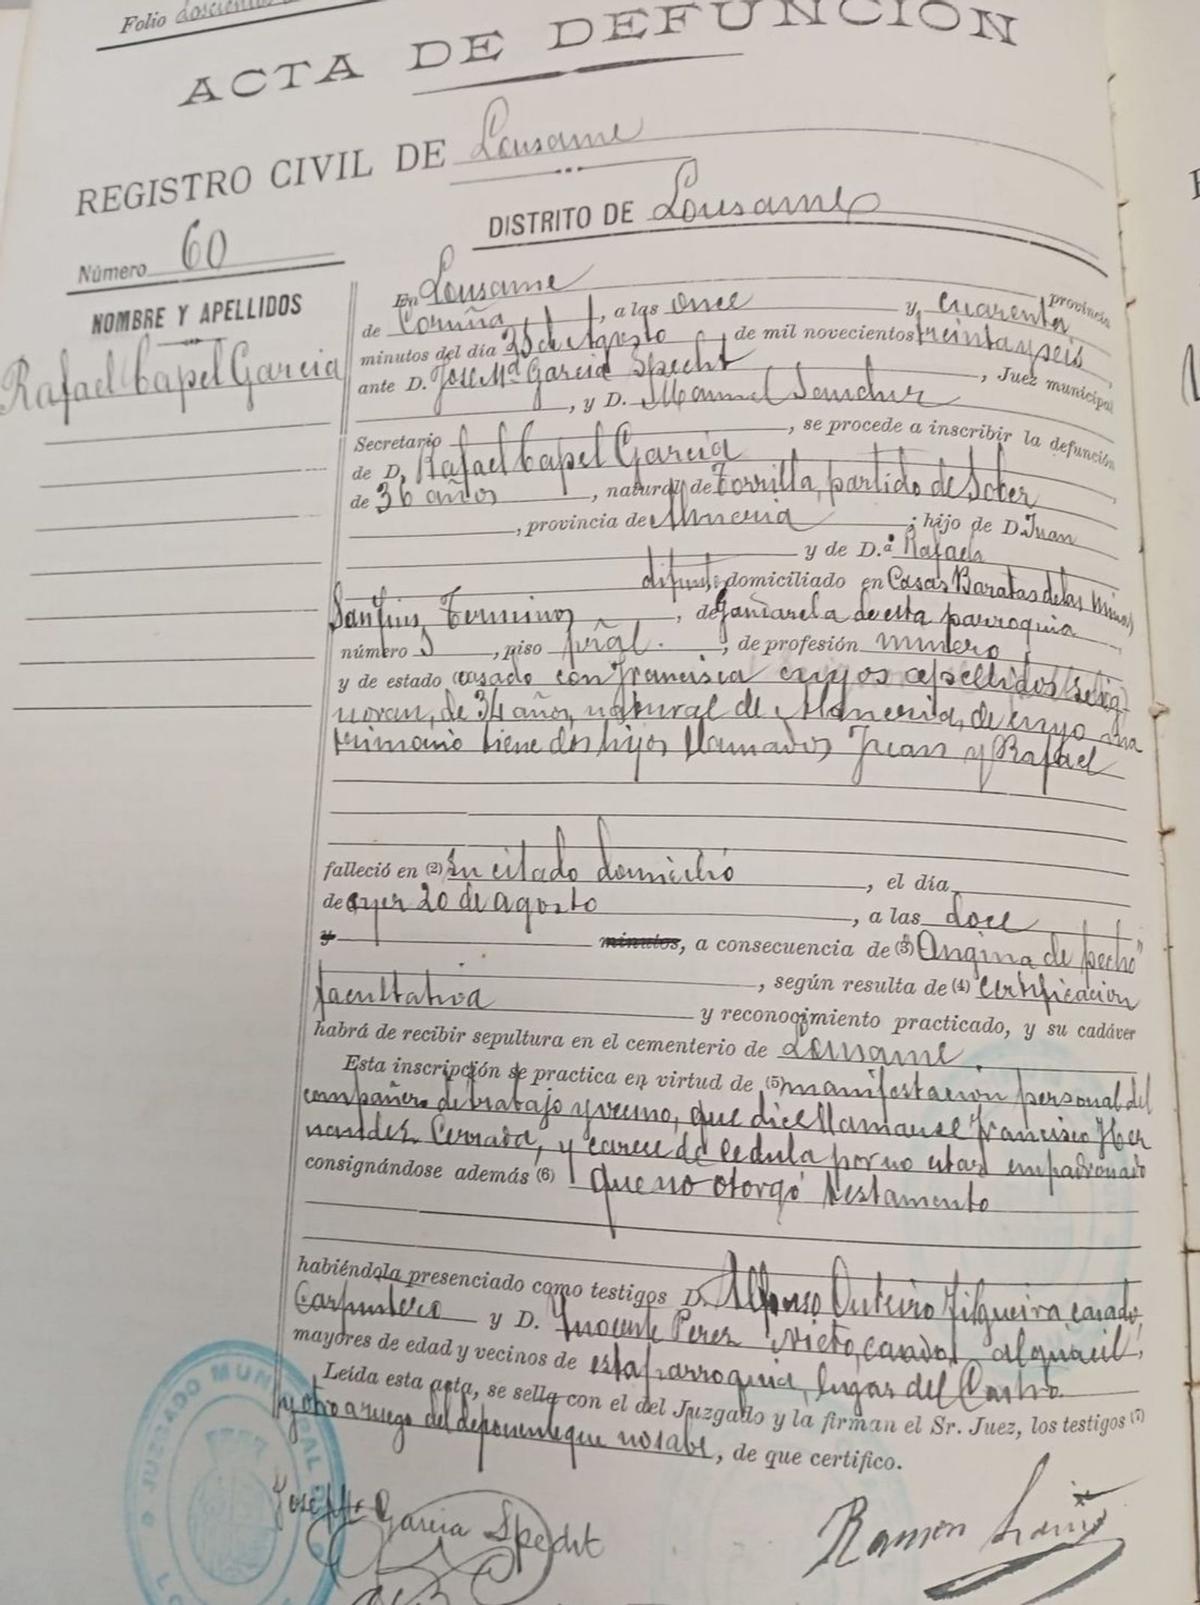 Folio doscientos
ACTA DE DEFUNCIÓN
REGISTRO CIVIL DE Lousame
DISTRITO DE Lousame
Número 60
NOMBRE Y APELLIDOS
Rafael Capel Garcia
En Lousame provincia
de Coruña, a las once y cuarenta
minutos del día de Agosto de mil novecientos treinta y seis
ante D. José Mª Garcia Specht, Juez municipal
, y D. Manuel Sanchez
Secretario, se procede a inscribir la defunción
de D. Rafael Capel Garcia
de 36 años, natural de Torrilla, partido de Sober
, provincia de Almeria; hijo de D. Juan
y de D.ª Rafaela
difuntos domiciliado en Casas Baratas de las Minas
San Finx Terminos, de de esta parroquia
número, piso pñal., de profesión minero
y de estado casado con Francisca cuyos apellidos se ig-
noran, de 34 años, natural de Almeria, de cuyo ma
trimonio tiene dos hijos llamados Juan y Rafael
falleció en (2) su citado domicilio, el día
de ayer 20 de agosto, a las doce
y minutos, a consecuencia de (3) "Angina de pecho"
, según resulta de (4) certificacion
facultativa y reconocimiento practicado, y su cadáver
habrá de recibir sepultura en el cementerio de Lousame.
Esta inscripción se practica en virtud de (5) manifestacion personal del
compañero de trabajo y vecino, que dice llamarse Francisco Her
nandez Cerrada, y carece de cedula por no estar empadronado
consignándose además (6) que no otorgó testamento
habiéndola presenciado como testigos D. Alfonso Outeiro Filgueira, casado,
Carpintero y D. Ynocente Perez Nieto, casado, alguacil,
mayores de edad y vecinos de esta parroquia, lugar del Castro.
Leída esta acta, se sella con el del Juzgado y la firman el Sr. Juez, los testigos (7)
y otro a ruego del deponente que no sabe, de que certifico.
JUZGADO MUN
José Mª Garcia Specht
Ramon